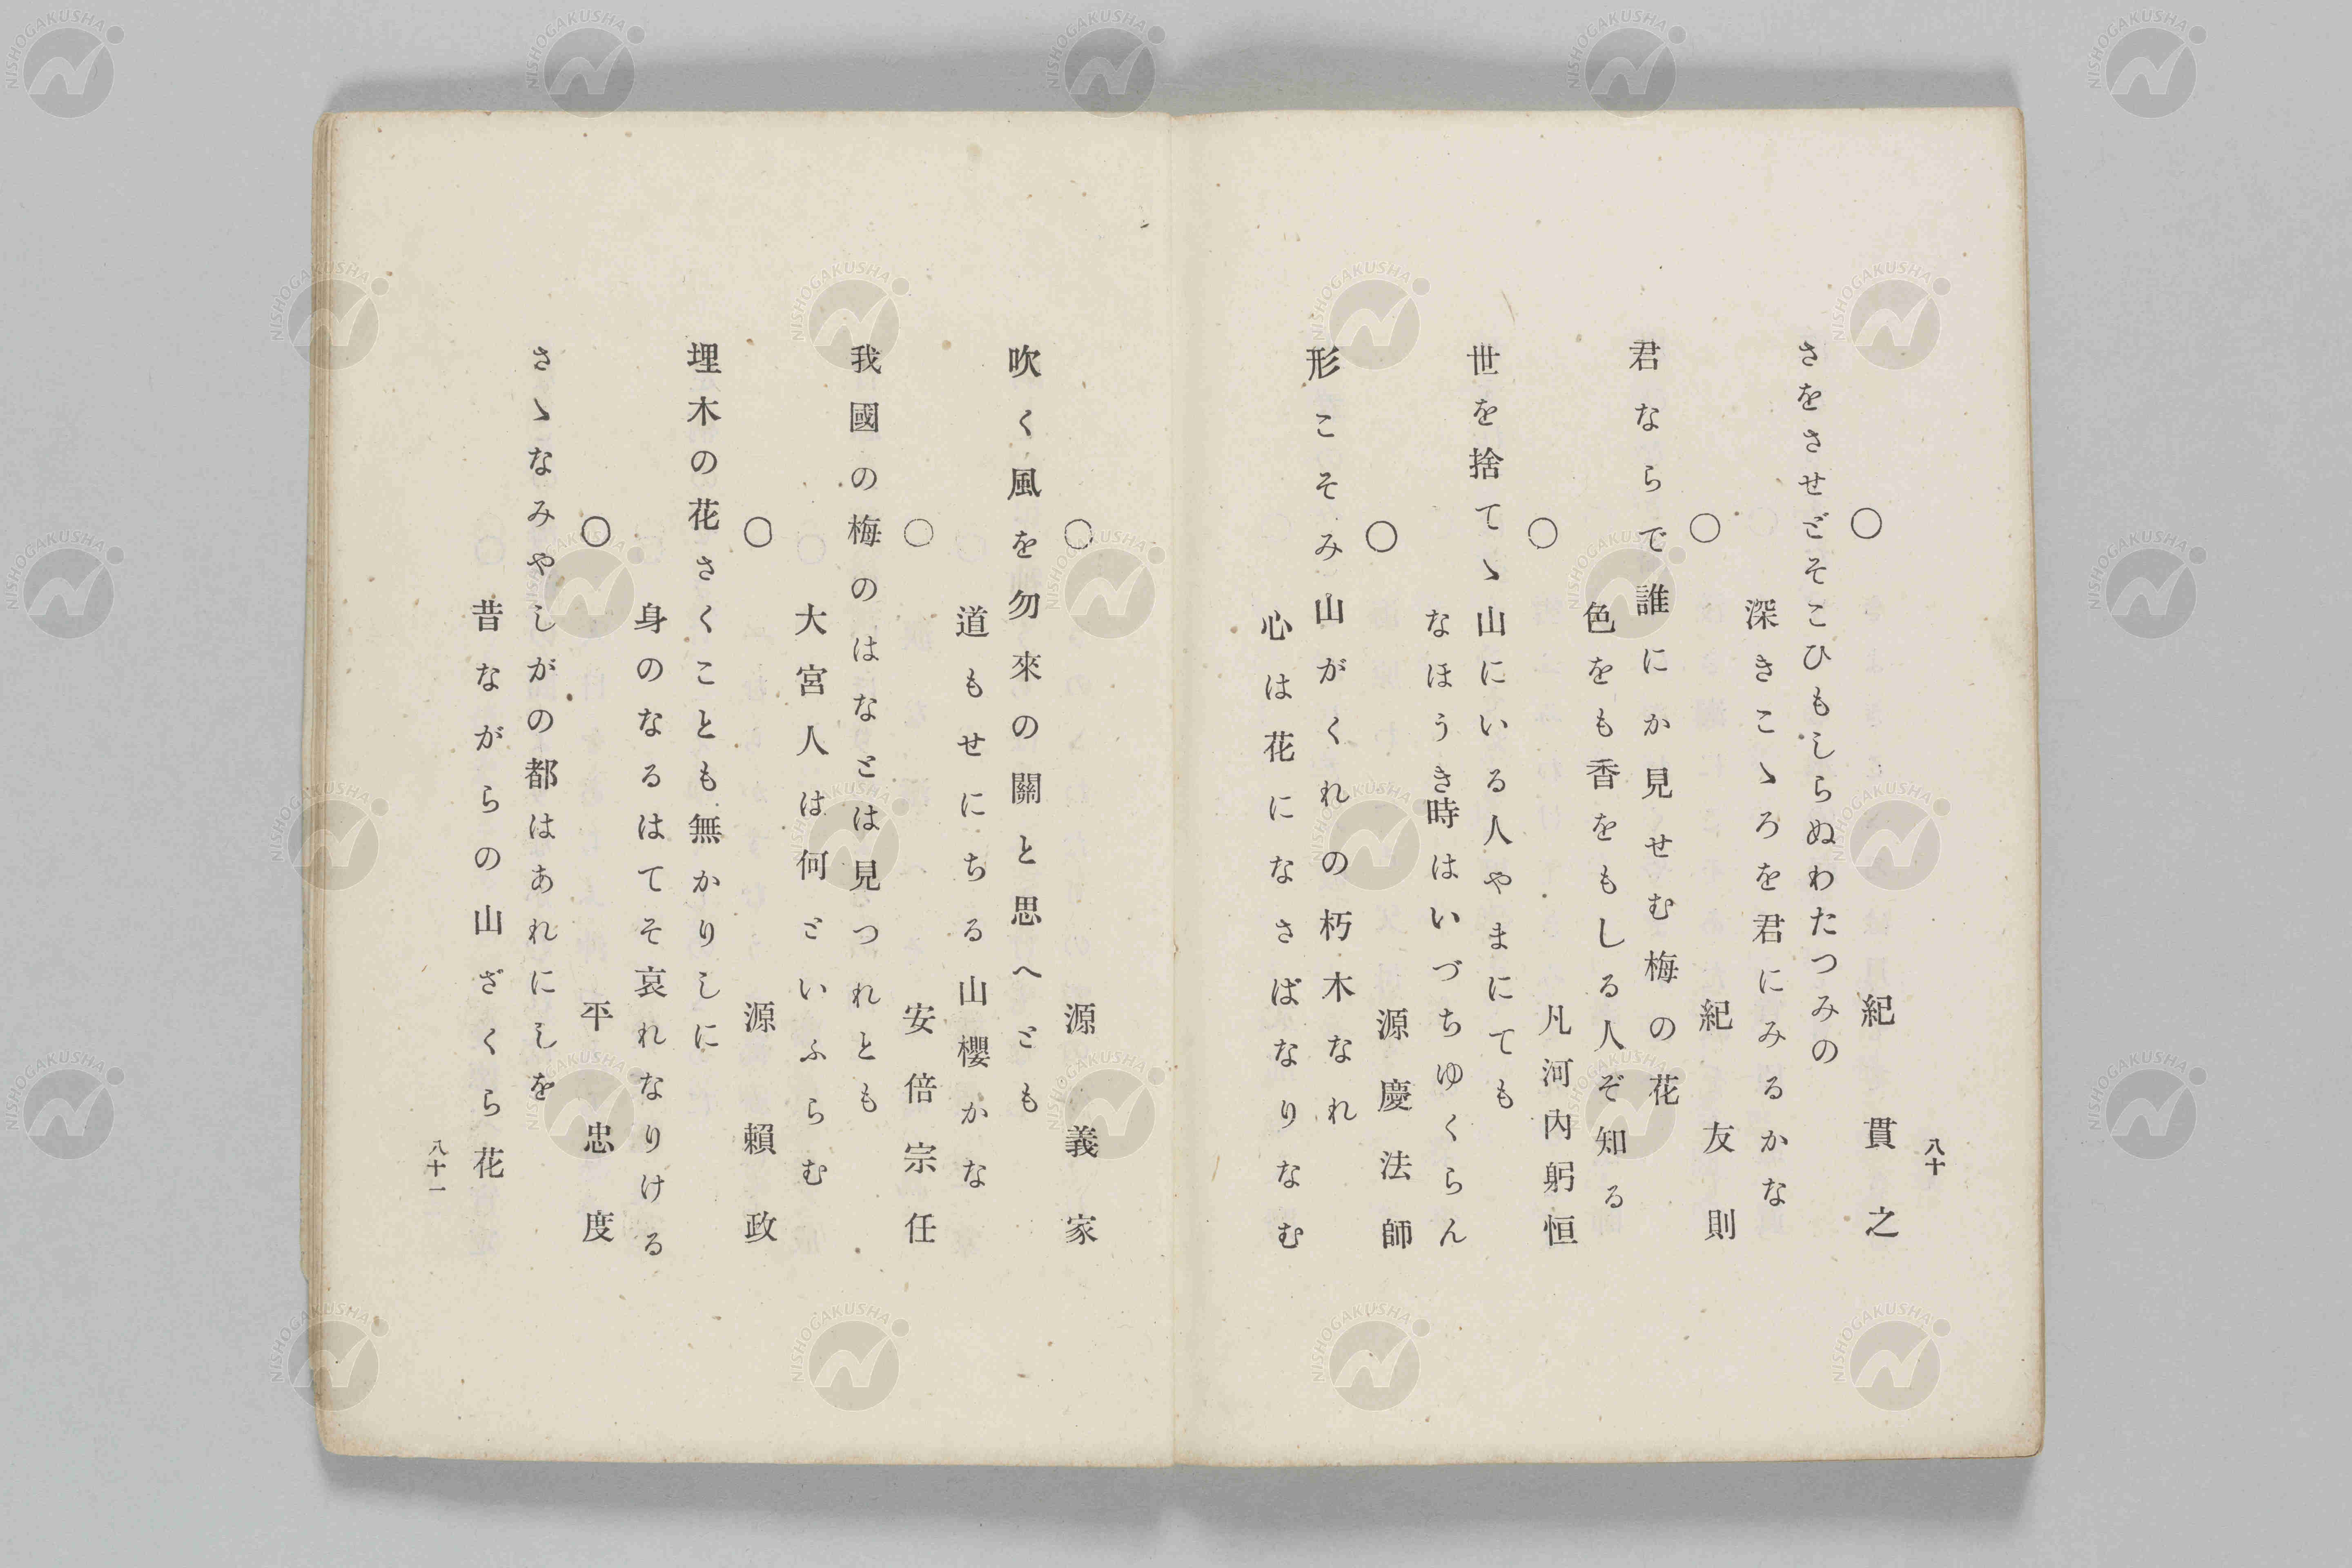 八十
○ 紀貫之
さをさせどそこひもしらぬわたつみの
深きこゝろを君にみるかな
○ 紀友則
君ならで誰にか見せむ梅の花
色をも香をもしる人ぞ知る
○ 凡河內躬恒
世を捨てゝ山にいる人やまにても
なほうき時はいづちゆくらん
○ 源慶法師
形こそみ山がくれの朽木なれ
心は花になさばなりなむ
○ 源義家
吹く風を勿來の關と思へども
道もせにちる山櫻かな
○ 安倍宗任
我國の梅のはなとは見つれとも
大宮人は何どいふらむ
○ 源賴政
埋木の花さくことも無かりしに
身のなるはてそ哀れなりける
○ 平忠度
さゝなみやしがの都はあれにしを
昔ながらの山ざくら花
八十一
NISHOGAKUSHA